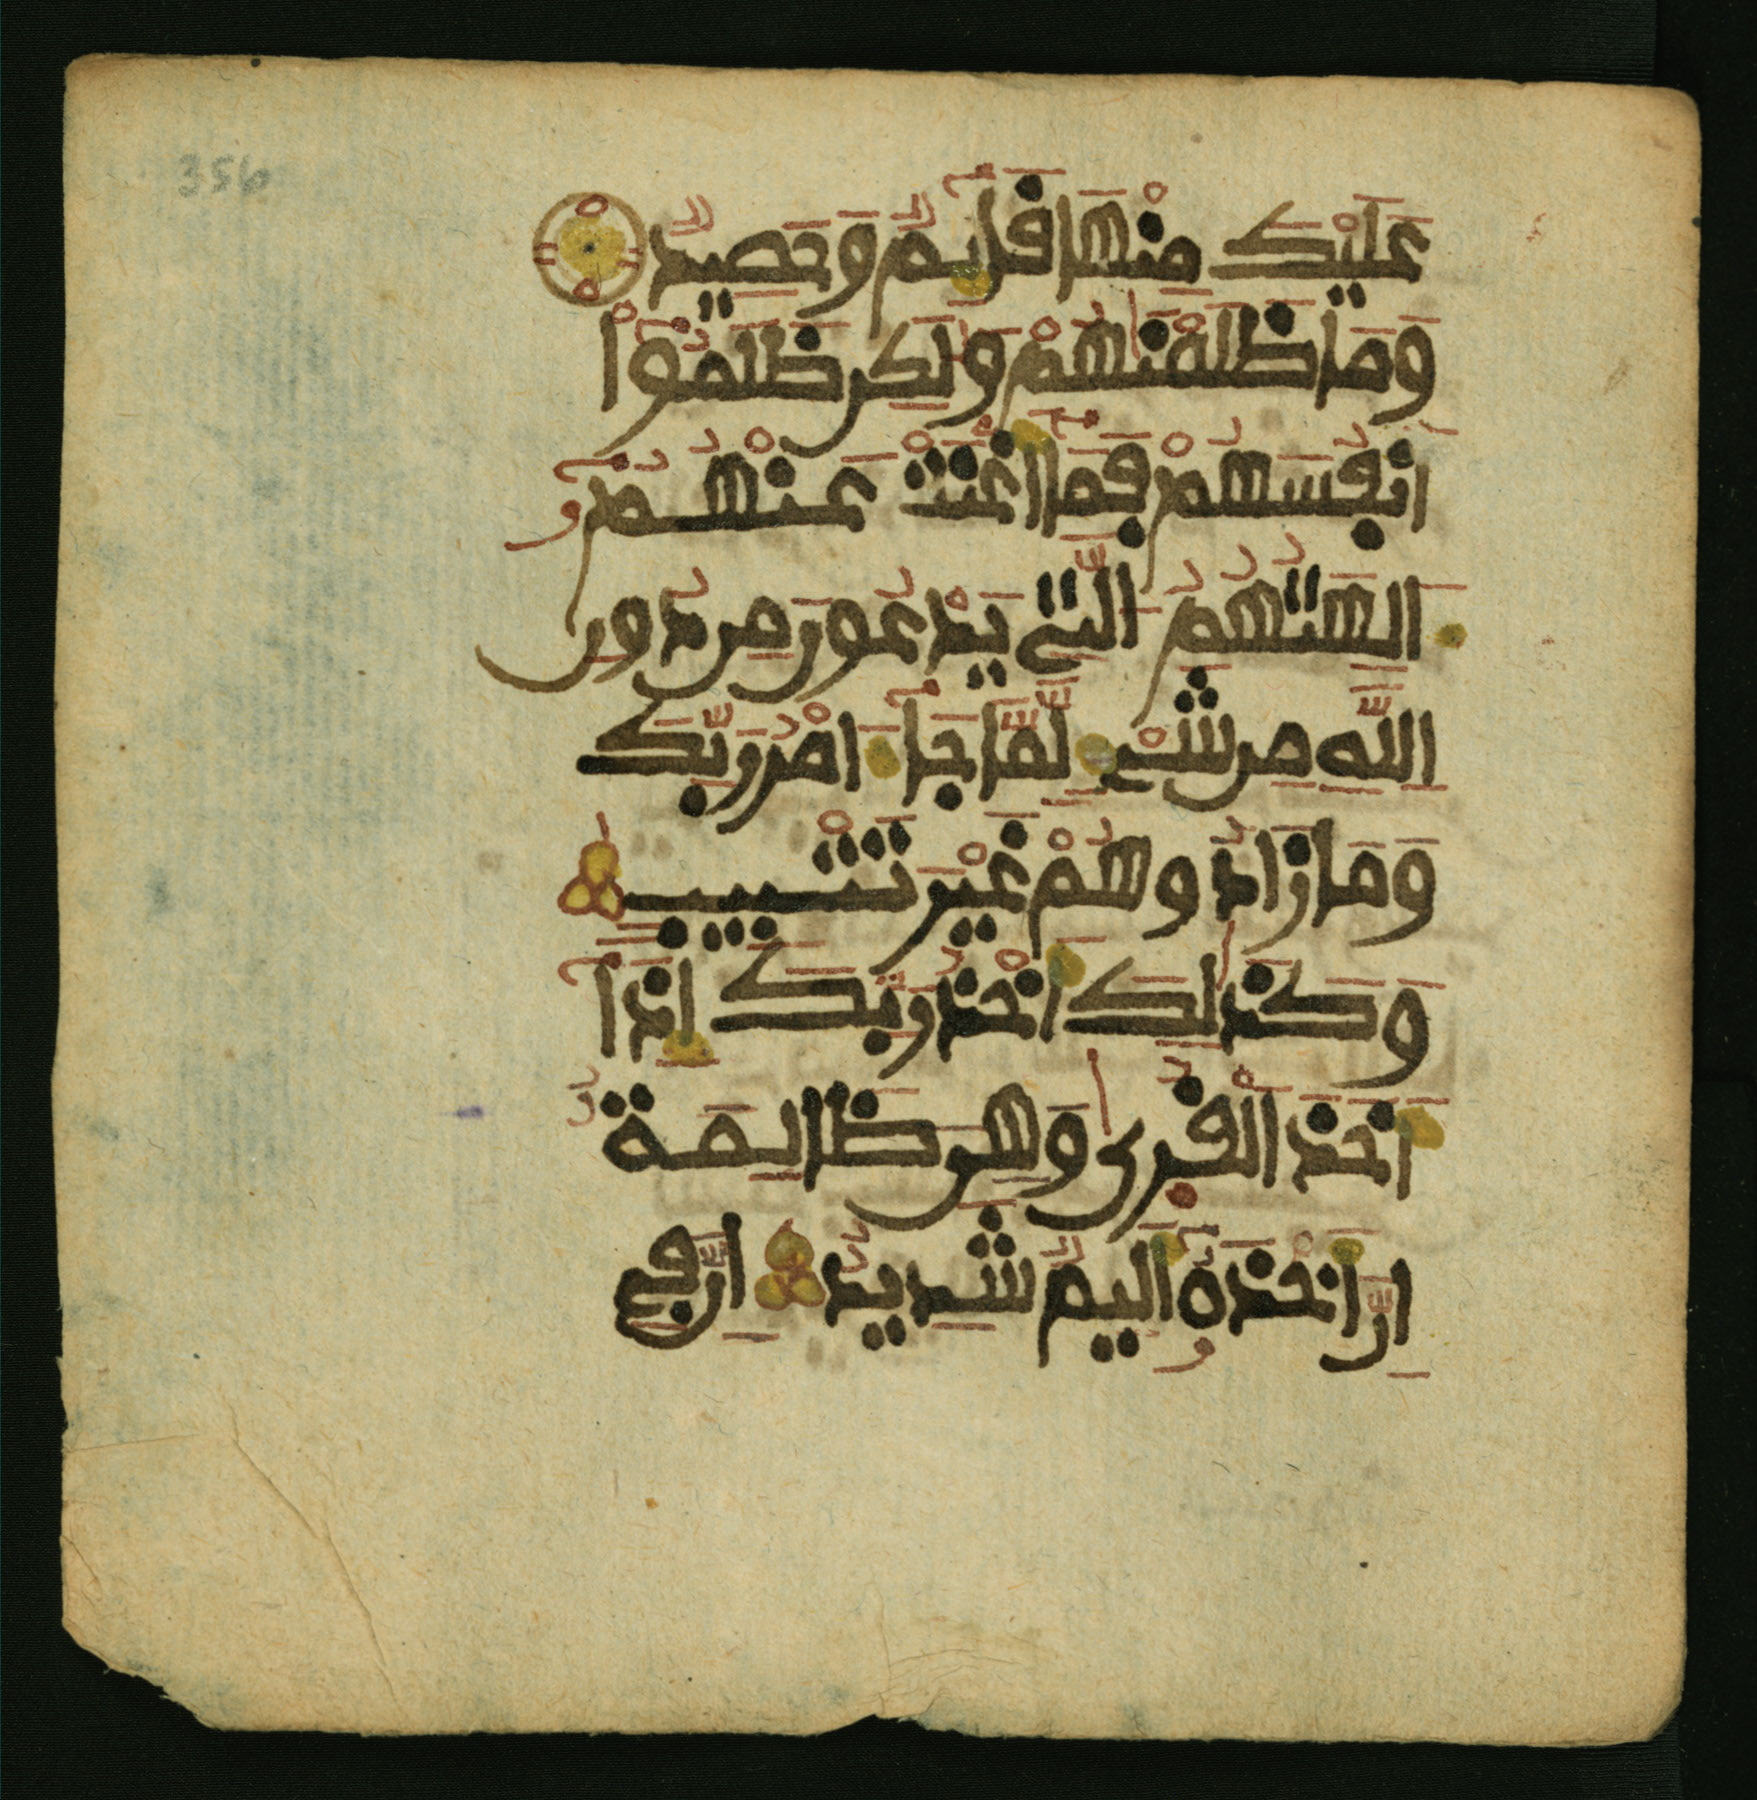 356
عَلَيْكَ مِنْهَا قَآئِمٌ وَحَصِيدٌ
وَمَا ظَلَمْنَٰهُمْ وَلَٰكِن ظَلَمُوٓاْ
أَنفُسَهُمْ فَمَآ أَغْنَتْ عَنْهُمُۥٓ
ءَالِهَتُهُمُ الَّتِے يَدْعُونَ مِن دُونِ
اللَّهِ مِن شَےْءٍ لَّمَّا جَآءَ امْرُ رَبِّكَ
وَمَا زَادُوهُمْ غَيْرَ تَتْبِيبٍ
وَكَذَٰلِكَ أَخْذُ رَبِّكَ إِذَآ
أَخَذَ اَلْقُرَىٰ وَهِىَ ظَٰلِمَةٌ
اِنَّ أَخْذَهُۥٓ أَلِيمٌ شَدِيدٌ اِنَّ فِے